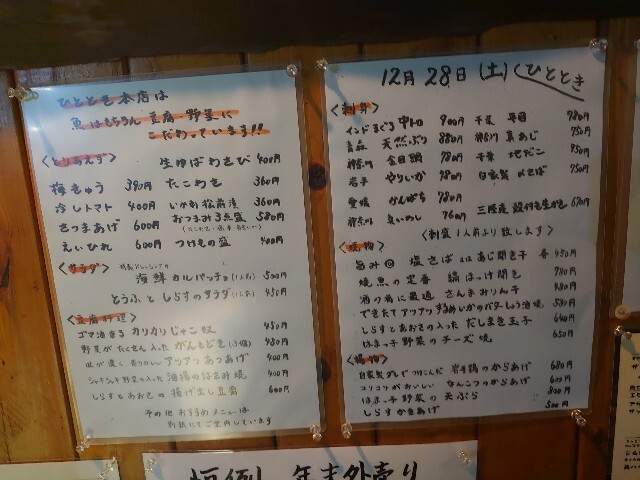 ひととき本店は
魚はもちろん豆腐・野菜に
こだわっています!!
<とりあえず> 生ゆばわさび 400円
梅きゅう 390円 たこわさ 360円
冷しトマト 400円 いか刺松前漬 360円
さつまあげ 600円 おつまみ3点盛 580円
えいひれ 600円 つけもの盛 400円
<サラダ>
海鮮カルパッチョ(1人前) 500円
とうふとしらすのサラダ(1人前) 450円
<豆腐料理>
ゴマ油香るカリカリじゃこ奴 450円
野菜がたくさん入ったがんもどき(3個) 480円
アツアツあつあげ 400円
シャキシャキ野菜入った油揚のはさみ焼 400円
しらすとあおさの揚げ出し豆腐 600円
その他おすすめメニューは
別紙にてご案内しています
12月28日(土) ひととき
<刺身>
インドまぐろ中トロ 900円 千葉 平目 780円
青森 天然ぶり 880円 神奈川 真あじ 750円
神奈川 金目鯛 780円 千葉 地だこ 950円
岩手 やりいか 780円 自家製〆さば 750円
愛媛 かんぱち 780円
神奈川 真いわし 760円 三陸産 殻付き生かき 670円
<刺盛1人前より致します>
<焼物>
旨み 塩さば 又は あじ開き干 各450円
焼魚の定番 縞ほっけ開き 780円
酒の肴に最適 さんまみりん干 480円
できたてアツアツするめいかのバターしょう油焼 580円
しらすとあおさの入っただしまき玉子 640円
はまっ子野菜のチーズ焼 650円
<揚物>
自家製ダレでつけこんだ 岩手鶏のからあげ 680円
コリコリがおいしい なんこつのからあげ 600円
はまっ子野菜の天ぷら 800円
しらすかきあげ 500円
恒例!年末外売り